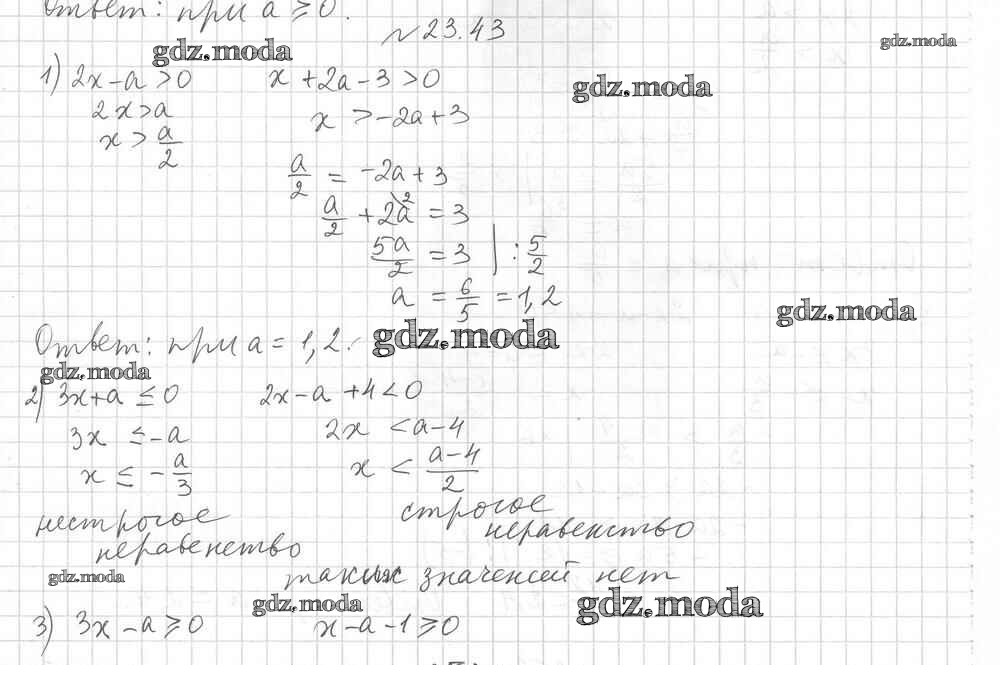 Ответ: при a ≥ 0.
№ 23.43
gdz.moda
gdz.moda
gdz.moda
1) 2x - a > 0    x + 2a - 3 > 0
2x > a    x > -2a + 3
x > a/2
a/2 = -2a + 3
a/2 + 2a^2 = 3
5a/2 = 3 | : 5/2
a = 6/5 = 1,2
gdz.moda
Ответ: при a = 1,2.
gdz.moda
gdz.moda
2) 3x + a ≤ 0    2x - a + 4 < 0
3x ≤ -a    2x < a - 4
x ≤ -a/3    x < (a-4)/2
нестрогое    строгое
неравенство    неравенство
gdz.moda
таких значений нет
gdz.moda
gdz.moda
3) 3x - a ≥ 0    x - a - 1 ≥ 0